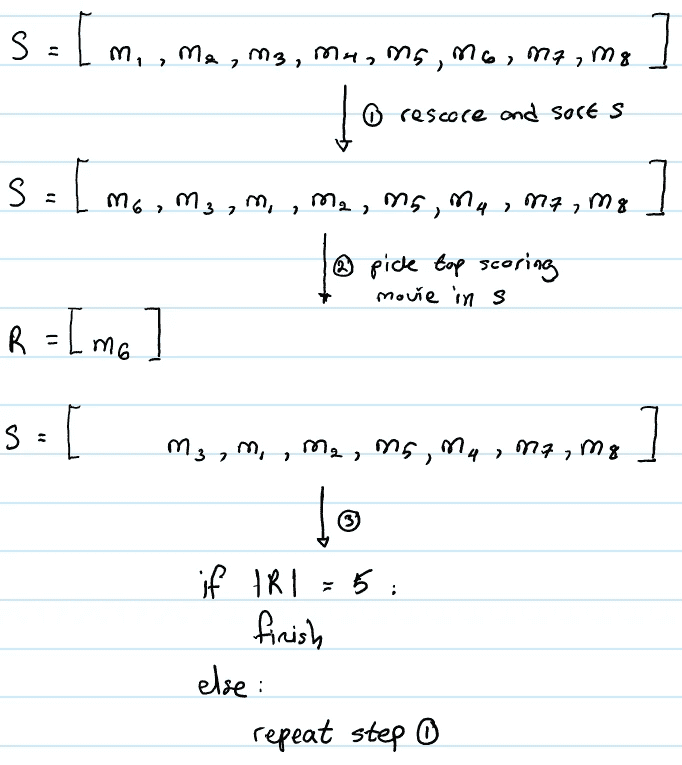 S = [ m₁ , m₂ , m₃ , m₄ , m₅ , m₆ , m₇ , m₈ ]
① rescore and sort S
S = [ m₆ , m₃ , m₁ , m₂ , m₅ , m₄ , m₇ , m₈ ]
② pick top scoring
movie in S
R = [ m₆ ]
S = [ m₃ , m₁ , m₂ , m₅ , m₄ , m₇ , m₈ ]
③
if |R| = 5 :
finish
else :
repeat step ①